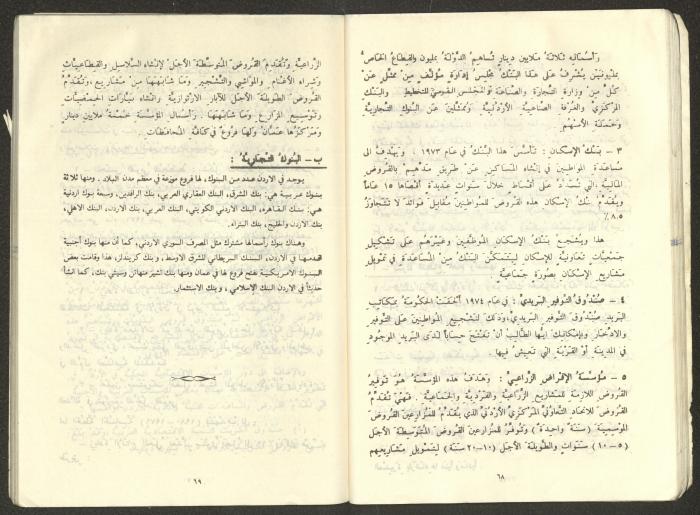 رأسماله ثلاثة ملايين دينار تساهم الدولة بمليون والقطاع الخاص
بمليونين يشرف على هذا البنك مجلس إدارة مؤلف من ممثل عن
كل من وزارة التجارة والصناعة والمجلس القومي للتخطيط والبنك
المركزي والغرفة الصناعية الأردنية وممثلين عن البنوك التجارية
وحملة الأسهم
٣ - بنك الإسكان : تأسس هذا البنك في عام ١٩٧٣ ، ويهدف الى
مساعدة المواطنين في إنشاء المساكن عن طريق مدهم بالقروض
المالية التي تسدد على أقساط خلال سنوات عديدة أقصاها ١٥ عاماً
ويقدم بنك الإسكان هذه القروض للمواطنين مقابل فوائد لا تتجاوز
٨,٥٪
هذا ويشجع بنك الإسكان الموظفين وغيرهم على تشكيل
جمعيات تعاونية للإسكان ليتمكن البنك من المساعدة في تمويل
مشاريع الإسكان بصورة جماعية
٤ - صندوق التوفير البريدي : في عام ١٩٧٤ ألحقت الحكومة بمكاتب
البريد صندوق التوفير البريدي، وذلك لتشجيع المواطنين على التوفير
والادخار، وبإمكانك ايها الطالب أن تفتتح حساباً لدى البريد الموجود
في المدينة أو القرية التي تعيش فيها
٥ - مؤسسة الإقراض الزراعي : وهدف هذه المؤسسة هو توفير
القروض اللازمة للمشاريع الزراعية والفردية والجماعية . فهي تقدم
القروض للاتحاد التعاوني المركزي الأردني الذي يقدم للمزارعين القروض
الموسمية (سنة واحدة) وتوفر للمزارعين القروض المتوسطة الأجل
(٥-١٠) سنوات والطويلة الأجل (١٠-٢٠ سنة) لتمويل مشاريعهم
٦٨
الزراعية وتقدم القروض المتوسطة الأجل لإنشاء السلاسل والقطاعيات
وشراء الأغنام والمواشي والتشجير وما شابهها من مشاريع ، وتقدم
القروض الطويلة الأجل للآبار الارتوازية وانشاء بيارات الحمضيات
وتوسيع المزارع وما شابهها . ورأسمال المؤسسة خمسة ملايين دينار
ومركزها عمان ولها فروع في كافة المحافظات .
ب - البنوك التجارية :
يوجد في الاردن عدد من البنوك، لها فروع موزعة في معظم مدن البلاد . ومنها ثلاثة
بنوك عربية هي: بنك الشرق، البنك العقاري العربي، بنك الرافدين، وسبعة بنوك اردنية
هي: بنك القاهرة، البنك الاردني الكويتي، البنك العربي، بنك الاردن، البنك الاهلي،
بنك الاردن والخليج، بنك البتراء.
وهناك بنوك رأسمالها مشترك مثل المصرف السوري الاردني، كما أن منها بنوك أجنبية
في الاردن، البنك البريطاني للشرق الاوسط، وبنك كريندلز، هذا وقامت بعض
البنوك الامريكية بفتح فروع لها في عمان ومنها بنك تشيز منهاتن وسيتي بنك، كما انشأ
حديثاً في الاردن البنك الإسلامي ، وبنك الاستثمار.
٦٩